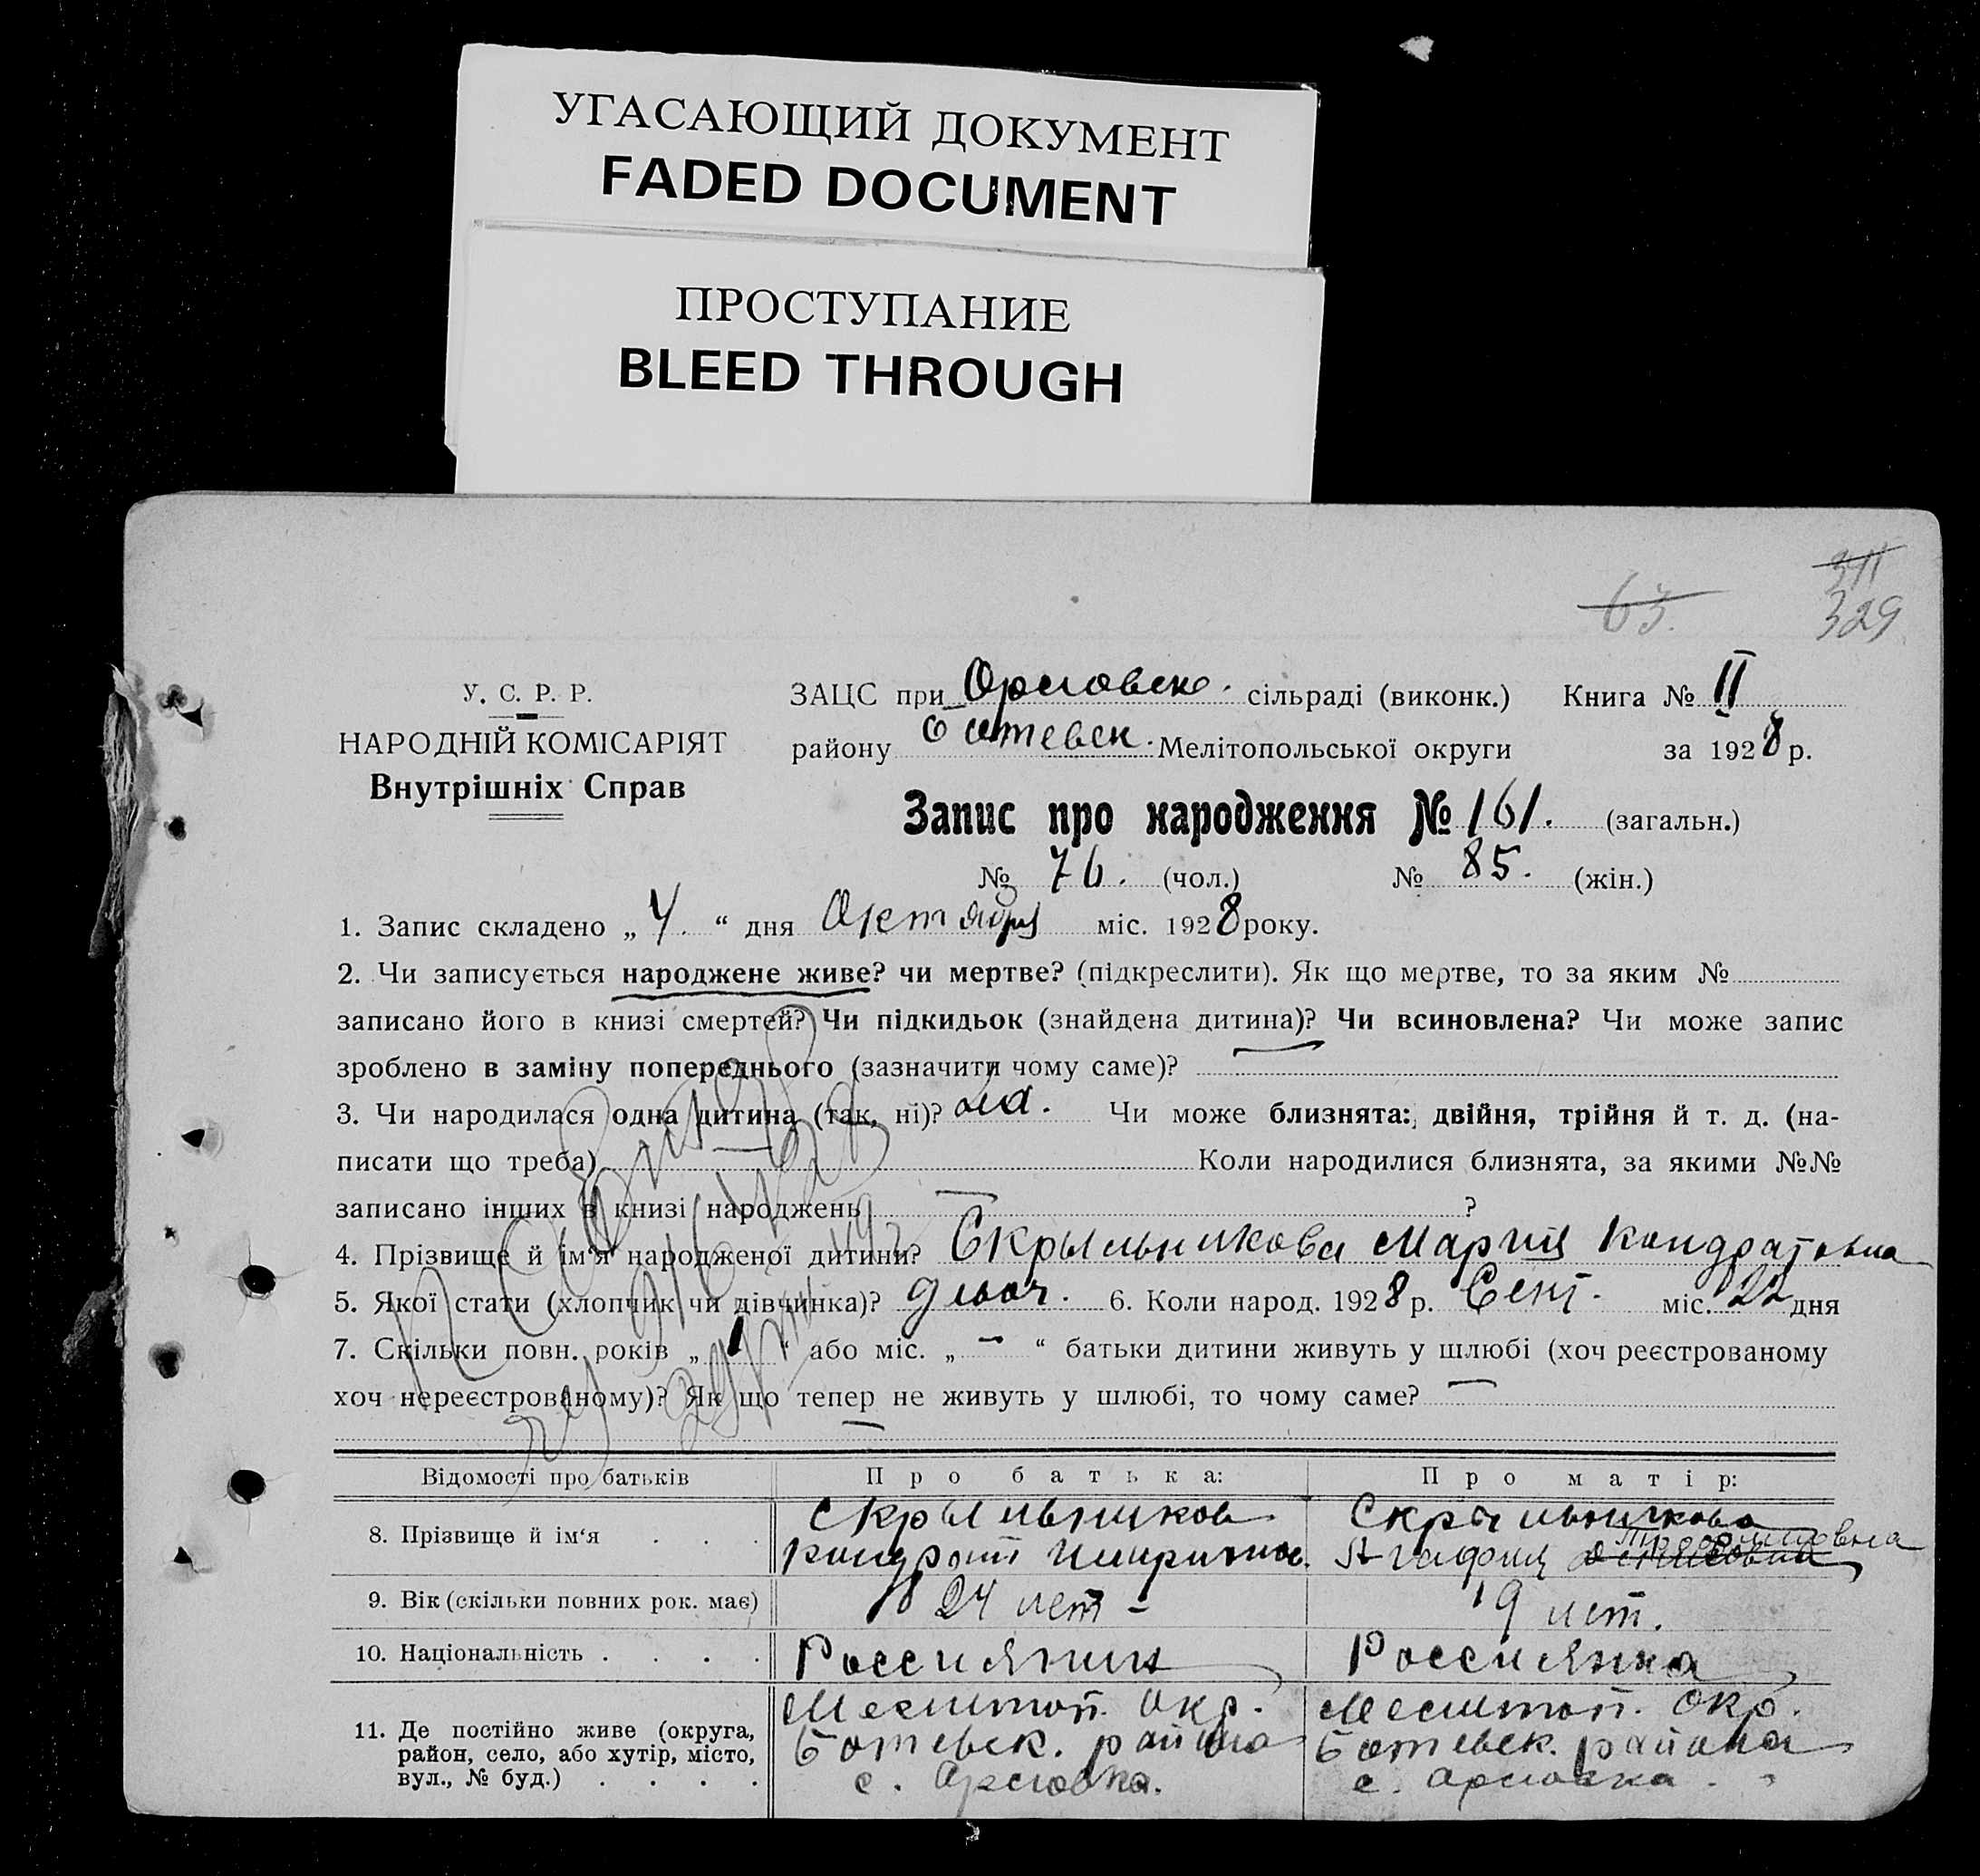 УГАСАЮЩИЙ ДОКУМЕНТ
FADED DOCUMENT
ПРОСТУПАНИЕ
BLEED THROUGH
63.
329
У. С. Р. Р.
НАРОДНІЙ КОМІСАРІЯТ
Внутрішніх Справ
ЗАЦС при Орловск. сільраді (виконк.) Книга № II
району Ботевск. Мелітопольської округи за 1928 р.
Запис про народження № 161. (загальн.)
№ 76. (чол.) № 85. (жін.)
1. Запис складено „ 4. “ дня Октября міс. 1928 року.
2. Чи записується народжене живе? чи мертве? (підкреслити). Як що мертве, то за яким №
записано його в книзі смертей? Чи підкидьок (знайдена дитина)? Чи всиновлена? Чи може запис
зроблено в заміну попереднього (зазначити чому саме)?
3. Чи народилася одна дитина (так, ні)? Чи може близнята: двійня, трійня й т. д. (на-
писати що треба) Коли народилися близнята, за якими №№
записано інших в книзі народжень ?
4. Прізвище й ім‘я народженої дитини? Скрыльникова Мария Кондратовна
5. Якої стати (хлопчик чи дівчинка)? 6. Коли народ. 1928 р. Сент. міс. 22 дня
7. Скільки повн. років „ 1 “ або міс. „ — “ батьки дитини живуть у шлюбі (хоч реєстрованому
хоч нереєстрованому)? Як що тепер не живуть у шлюбі, то чому саме? —
Відомості про батьків Про батька: Про матір:
8. Прізвище й ім‘я . . . Скрыльников Скрыльникова
Кондрат Агафия
9. Вік (скільки повних рок. має) 24 лет - 19 лет.
10. Національність . . . . Россиянин Россиянка
11. Де постійно живе (округа, район, село, або хутір, місто, вул., № буд.) . . . .
Мелитоп. окр. Мелитоп. окр.
Ботевск. района Ботевск. района
с. Орловка. с. Орловка.